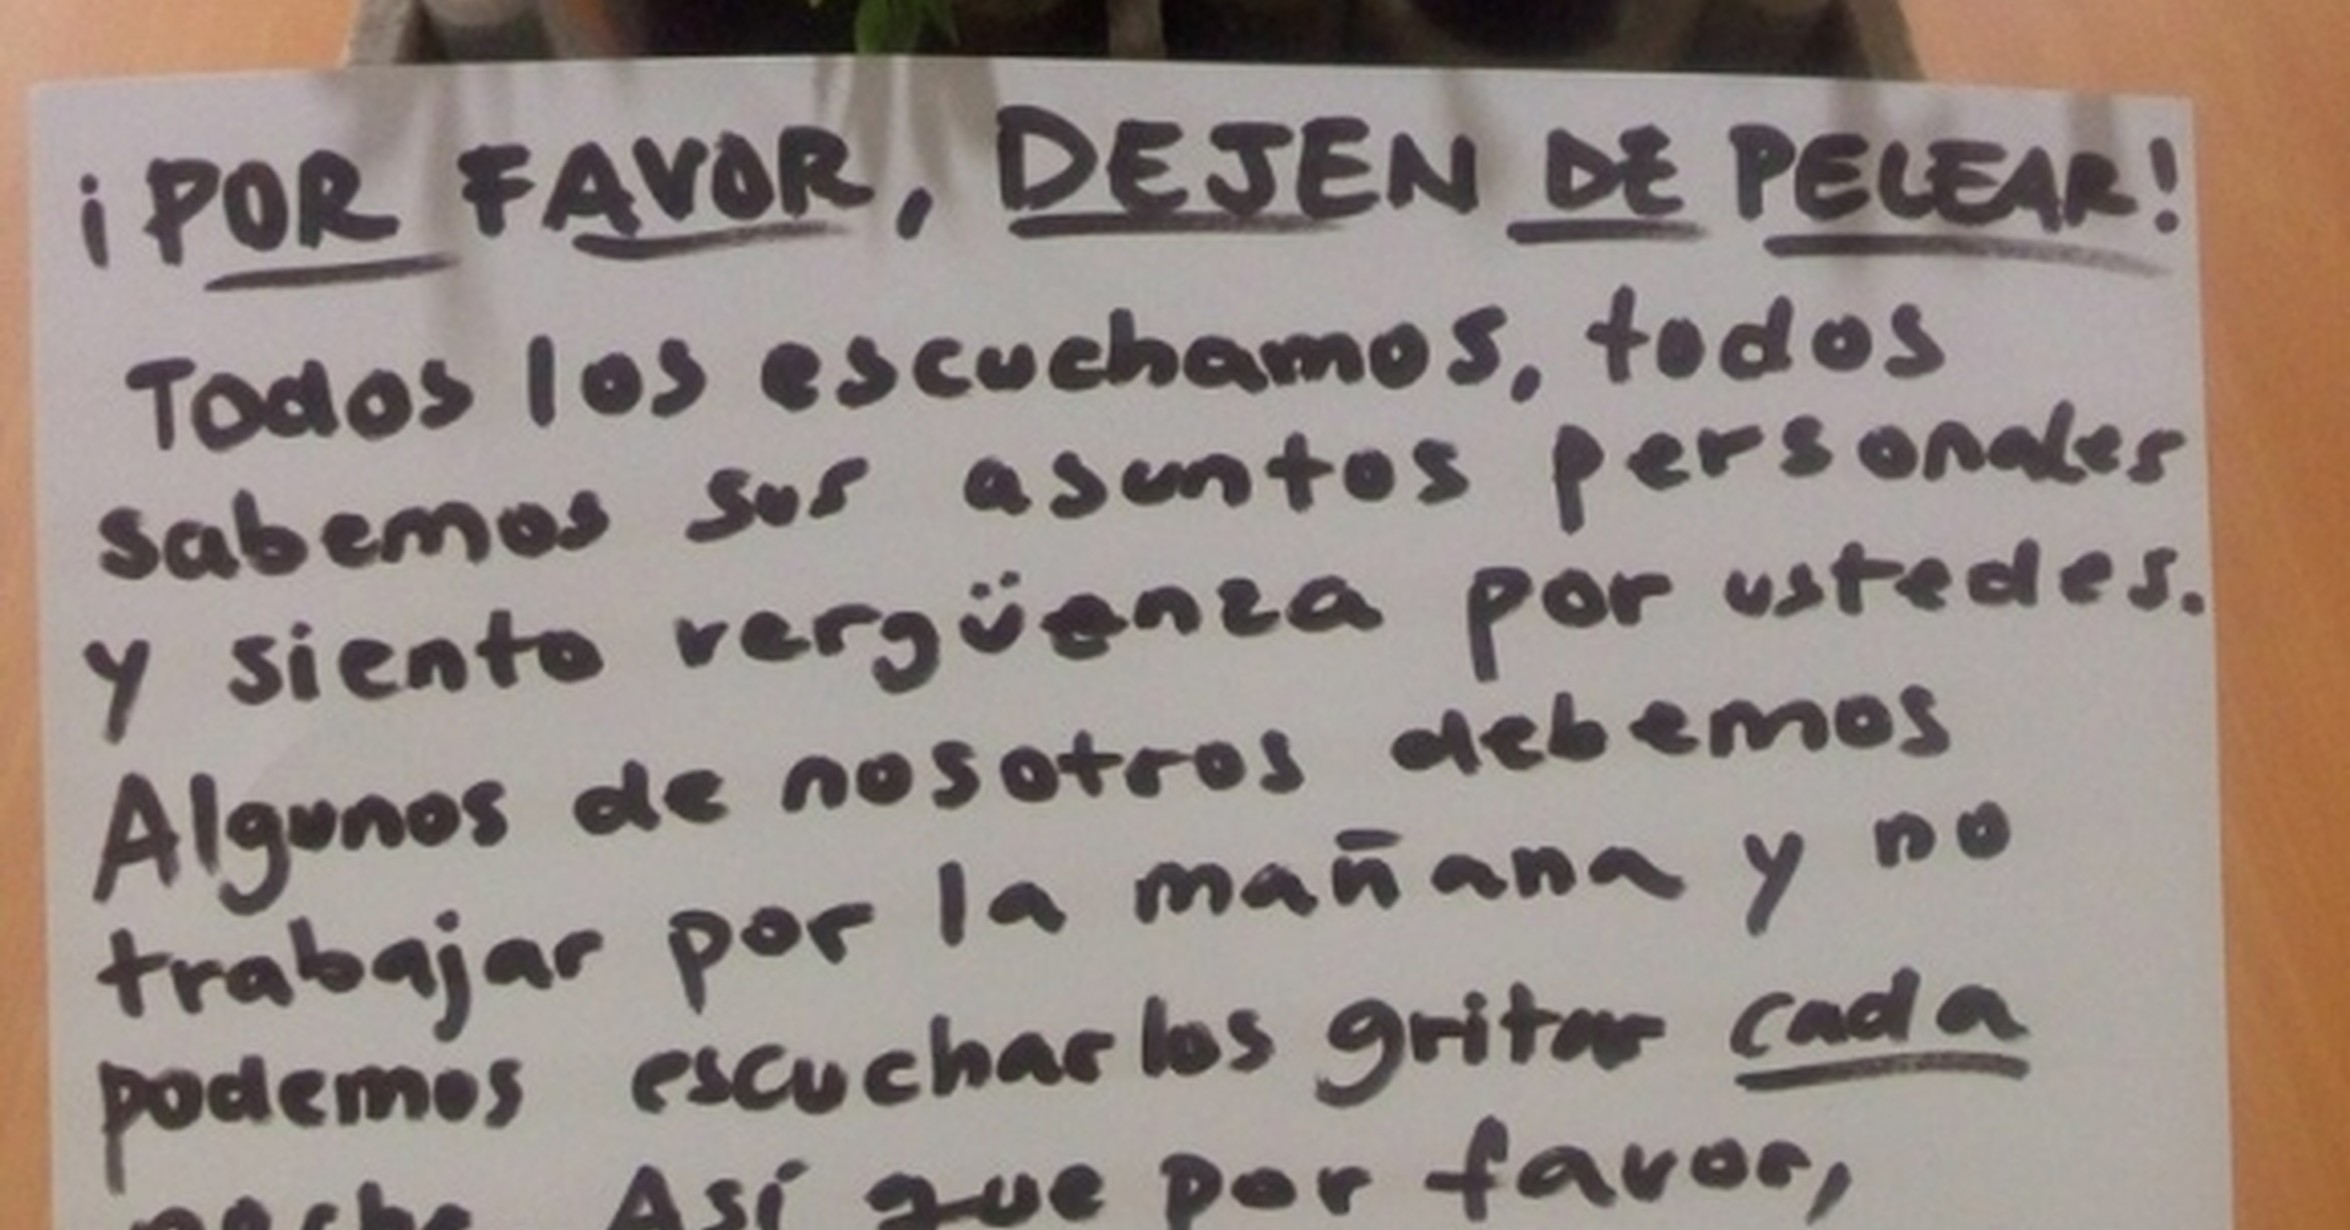 ¡POR FAVOR, DEJEN DE PELEAR!
Todos los escuchamos, todos
sabemos sus asuntos personales
y siento vergüenza por ustedes.
Algunos de nosotros debemos
trabajar por la mañana y no
podemos escucharlos gritar cada
noche. Así que por favor,